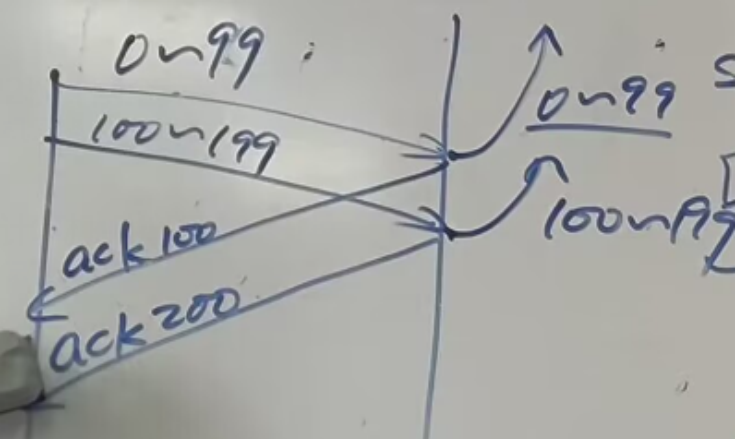 0~99
100~199
ack 100
ack 200
0~99